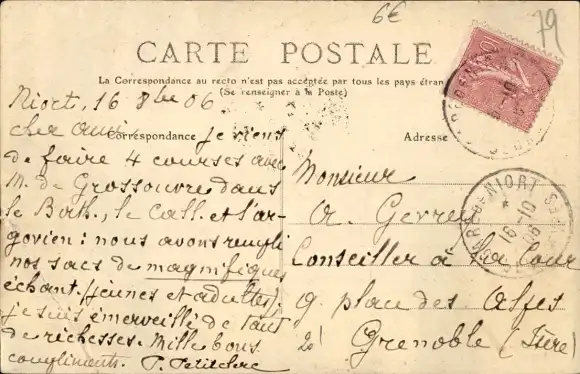 6€
79
CARTE POSTALE
La Correspondance au recto n'est pas acceptée par tous les pays étran
(Se renseigner à la Poste)
Correspondance
Adresse
Niort, 16 8bre 06
cher ami je viens
de faire 4 courses avec
M. de Grossouvre dans
le Bath., le Call. et l'ar-
govien: nous avons rempli
nos sacs de magnifiques
échant. (jeunes et adultes),
je suis émerveillé de tant
de richesses. Mille bons
compliments. P. Petitclerc
Monsieur
A. Gevrey
Conseiller à la Cour
9. place des Alpes
Grenoble (Isère)
10
NIORT
16-10
06